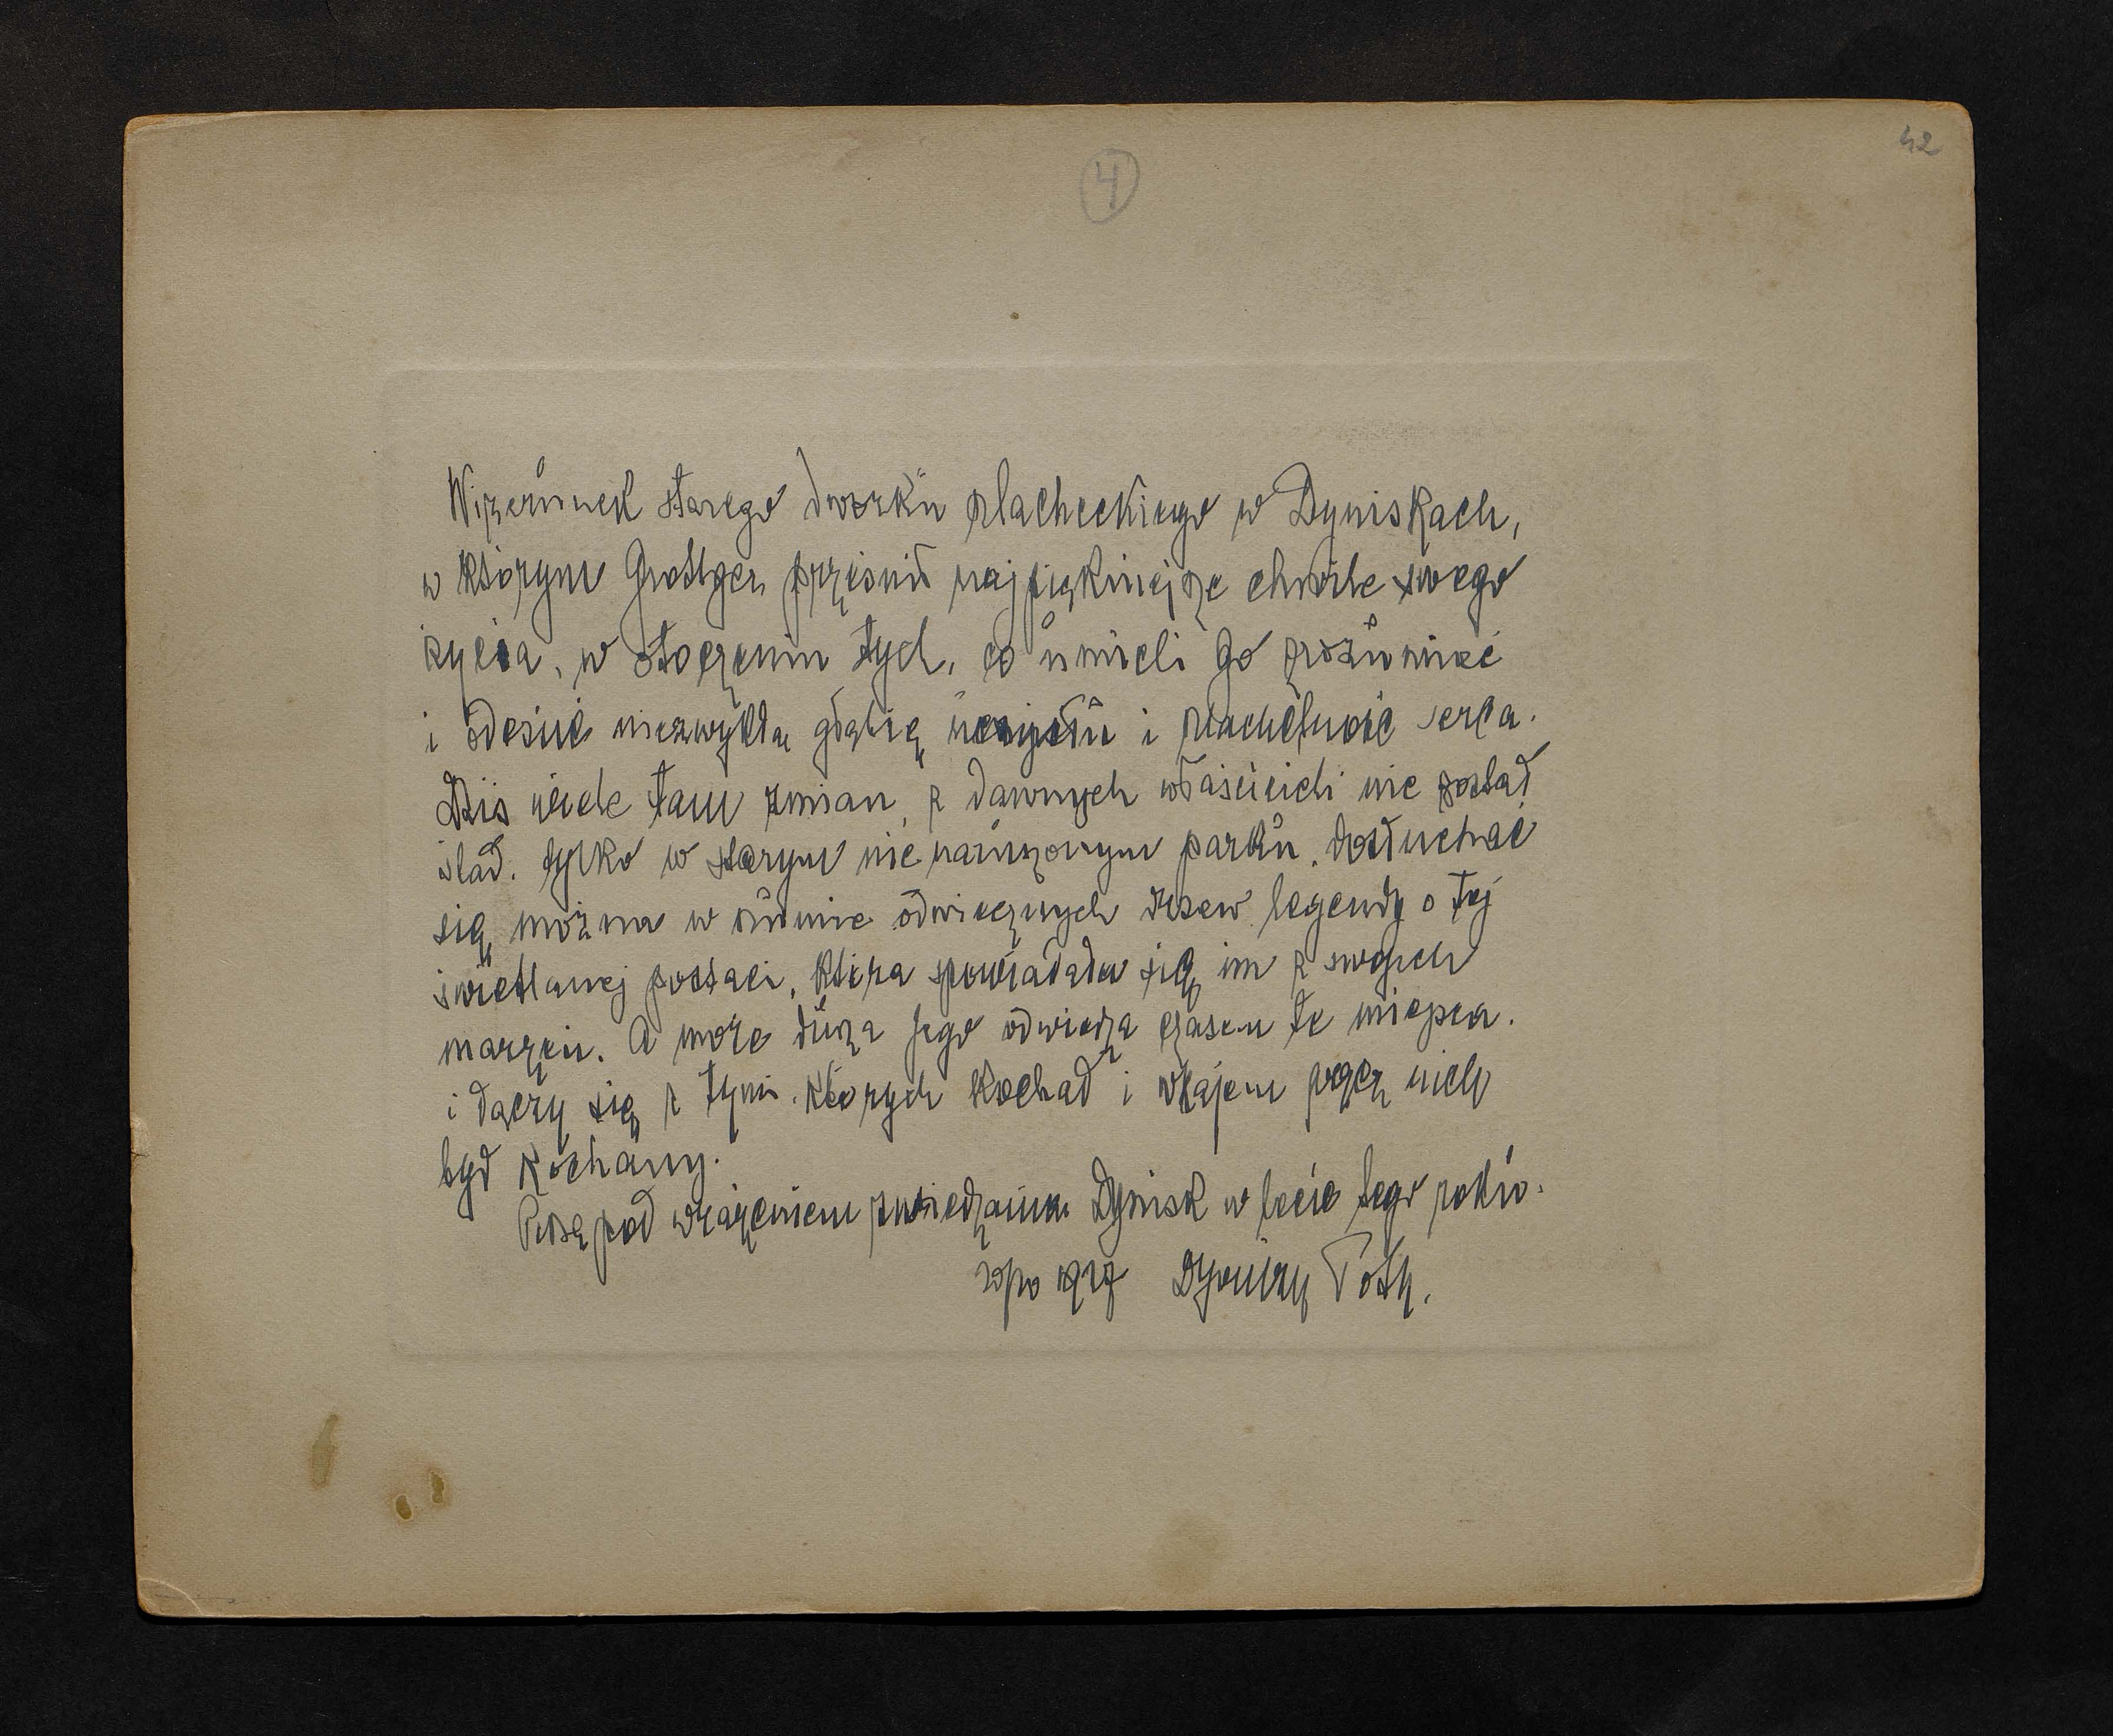 42
4
Wizerunek starego dworku szlacheckiego w Dyniskach,
w którym Grottger prześnił najpiękniejsze chwile swego
życia, w otoczeniu tych, co umieli Go zrozumieć
i odczuć niezwykłą głębię uczuć i szlachetność serca.
Dziś wiele tam zmian, z dawnych właścicieli nie został
ślad. tylko w starym nienaruszonym parku, dosłuchać
się można w szumie odwiecznych drzew legendy o tej
świetlanej postaci, która spowiadała się im z swoich
marzeń. A może dusza Jego odwiedza czasem te miejsca.
i łączy się z tymi, których kochał i wzajem przez nich
był kochany.
Piszę pod wrażeniem zwiedzania Dynisk w lecie tego roku.
1917